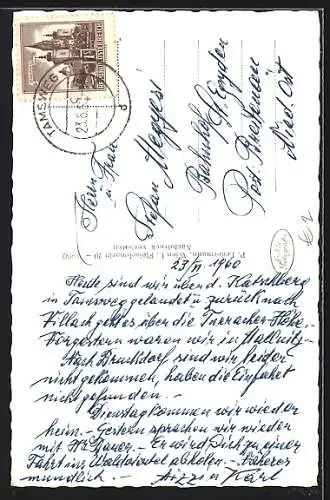 TAMSWEG
23.6.60
Herrn
u. Frau
Stefan Megyesi
Bahnhof St. Egyden
Post
Nied. Öst
P. Ledermann, Wien I, Fleischmarkt 20 –
Nachdruck verboten
€2
23/VI. 1960
Heute sind wir über d. Katschberg
in Tamsweg gelandet u. zurück nach
Villach geht es über die Turracher Höhe.
Vorgestern waren wir in Mallnitz.
Nach Bruckdorf sind wir leider
nicht gekommen, haben die Einfahrt
nicht gefunden. –
Dienstag kommen wir wieder
heim. – Gestern sprachen wir wieder
mit Bauer. – Er wird Dich zu einer
Fahrt ins Waldviertel abholen. – Näheres
mündlich. – Karl